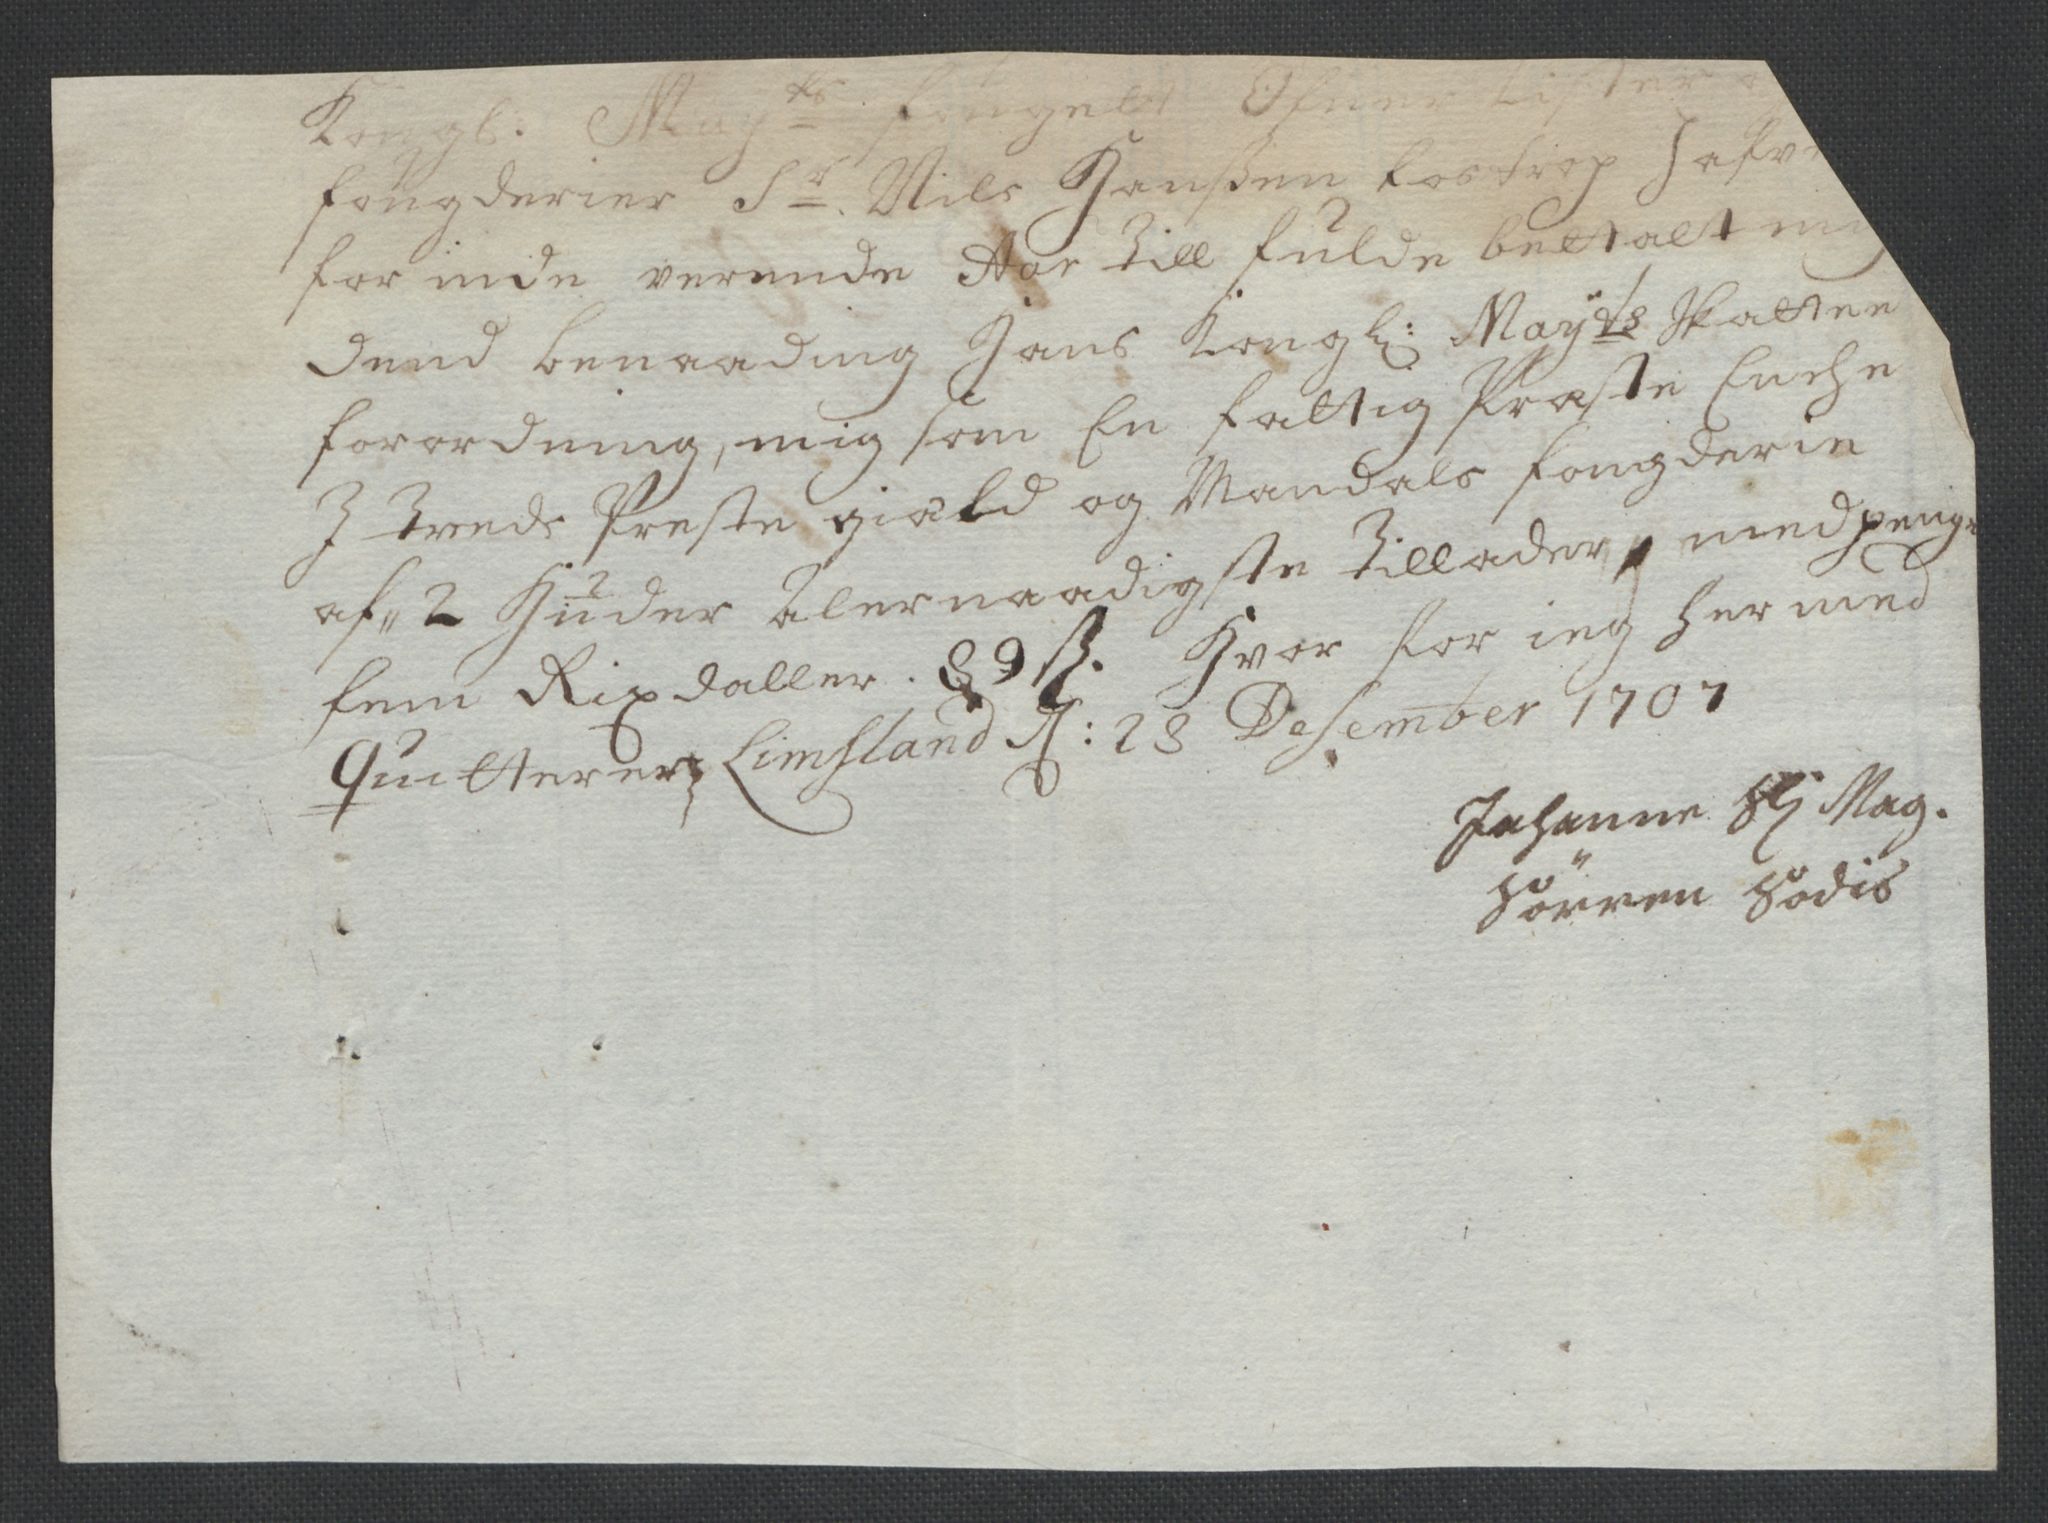 Kongl: Maÿts fouget Ofuer Lister
fougderier Sr. Nils Hanßen Tostrop Hafve
for inde verende Aar till fulde bettalt mig
dend benaading Hans Kongl: Maÿts Skattee
forordning, mig som En fattig Præste Enche
J Treds Preste giæld og Mandals fougderie
af 2 Huder alernaadigste tillader, med penge
fem Rixdaller. 89 ß. Hvor for ieg her med
Quitterer, Limsland d: 28 Desember 1707
Johanne Sl Mag.
Sörren Södis